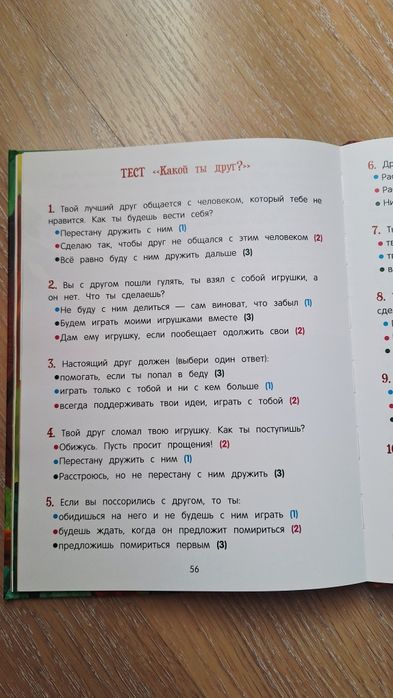 ТЕСТ «Какой ты друг?»
1. Твой лучший друг общается с человеком, который тебе не
нравится. Как ты будешь вести себя?
•Перестану дружить с ним (1)
•Сделаю так, чтобы друг не общался с этим человеком (2)
•Всё равно буду с ним дружить дальше (3)
2. Вы с другом пошли гулять, ты взял с собой игрушки, а
он нет. Что ты сделаешь?
•Не буду с ним делиться — сам виноват, что забыл (1)
•Будем играть моими игрушками вместе (3)
•Дам ему игрушку, если пообещает одолжить свои (2)
3. Настоящий друг должен (выбери один ответ):
•помогать, если ты попал в беду (3)
•играть только с тобой и ни с кем больше (1)
•всегда поддерживать твои идеи, играть с тобой (2)
4. Твой друг сломал твою игрушку. Как ты поступишь?
•Обижусь. Пусть просит прощения! (2)
•Перестану дружить с ним (1)
•Расстроюсь, но не перестану с ним дружить (3)
5. Если вы поссорились с другом, то ты:
•обидишься на него и не будешь с ним играть (1)
•будешь ждать, когда он предложит помириться (2)
•предложишь помириться первым (3)
56
6.
7.
8.
9.